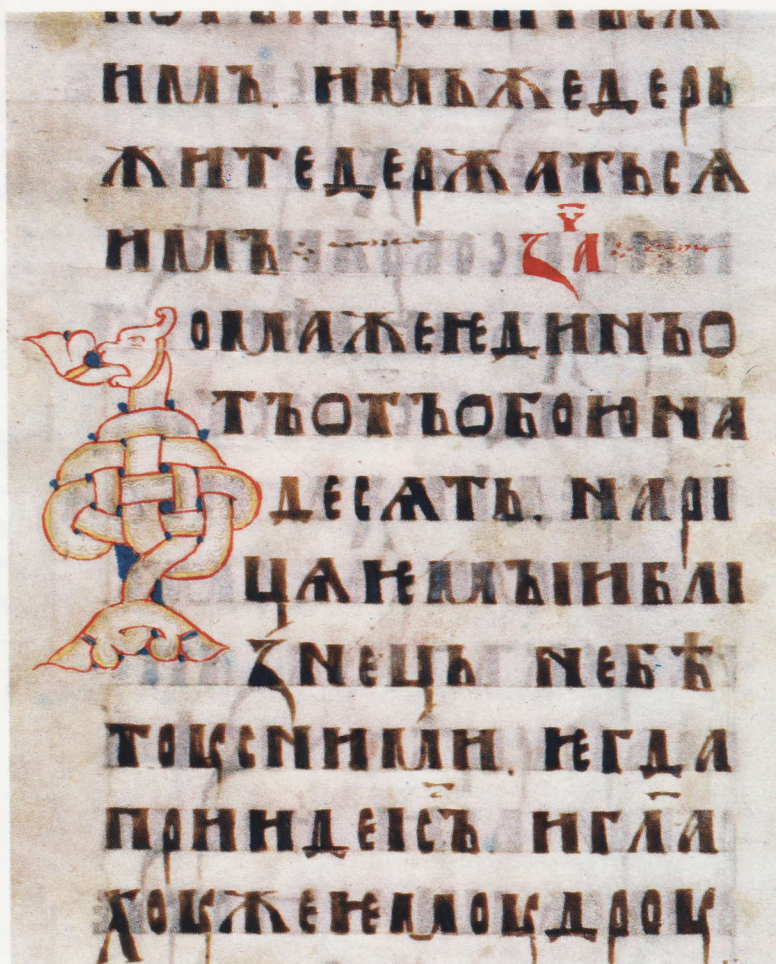 имъ. имьжедерь
житедержатьсѧ
имъ ⁘ ꙁа ⁘
Фомажеѥдинъо
тъотъобоюна
десѧть. нарі
цѧѥмъіиблі
ꙁнець небѣ
тоусними. ѥгда
приидеіс҃ъ. игл҃а
хоужеѥмоудроу